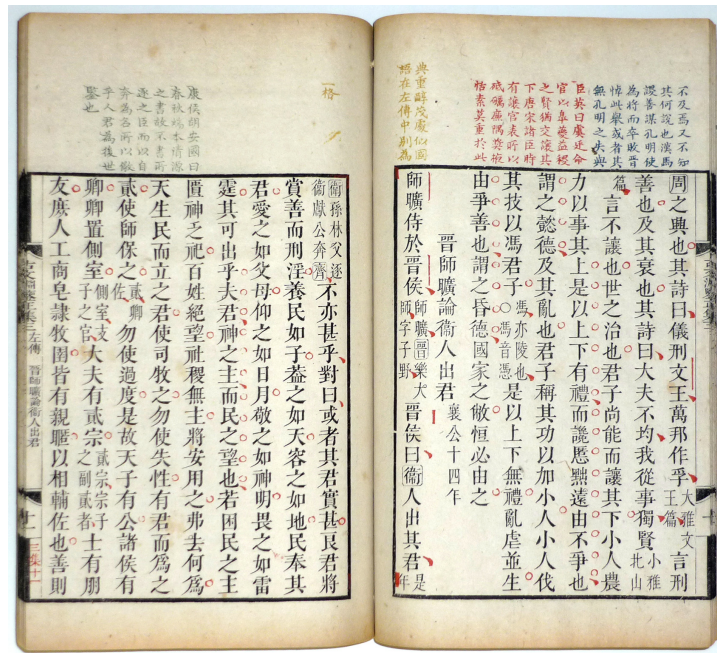 不及焉又不知
其何說也漢馬
謖善謀孔明使
為將而卒敗晉
悼此舉或者其
無孔明之失與
臣英曰虞廷命
官以皋夔益稷
之賢猶交讓其
下唐宋諸臣時
有讓官表所以
砥礪廉隅獎掖
恬素莫重於此
典重醇茂處似國
語在左傳中別為
周之典也其詩曰儀刑文王萬邦作孚大雅文王篇言刑
善也及其衰也其詩曰大夫不均我從事獨賢小雅北山
篇言不讓也世之治也君子尚能而讓其下小人農
力以事其上是以上下有禮而讒慝黜遠由不爭也
謂之懿德及其亂也君子稱其功以加小人小人伐
其技以馮君子馮亦陵也○馮音憑是以上下無禮亂虐並生
由爭善也謂之昏德國家之敝恒必由之
晉師曠論衞人出君襄公十四年
師曠侍於晉侯師曠晉樂大師字子野晉侯曰衞人出其君是年
一格
康侯胡安國曰
春秋端本清源
之書故不書所
逐之臣而以自
奔為名所以儆
乎人君為後世
鑒也
衞孫林父逐衞獻公奔齊不亦甚乎對曰或者其君實甚良君將
賞善而刑淫養民如子葢之如天容之如地民奉其
君愛之如父母仰之如日月敬之如神明畏之如雷
霆其可出乎夫君神之主而民之望也若困民之主
匱神乏祀百姓絕望社稷無主將安用之弗去何為
天生民而立之君使司牧之勿使失性有君而為之
貳使師保之貳卿佐勿使過度是故天子有公諸侯有
卿卿置側室側室支子之官大夫有貳宗貳宗宗子之副貳者士有朋
友庶人工商皂隸牧圉皆有親暱以相輔佐也善則
古文淵鑒正集三 左傳 晉師曠論衞人出君 十一
三集十一